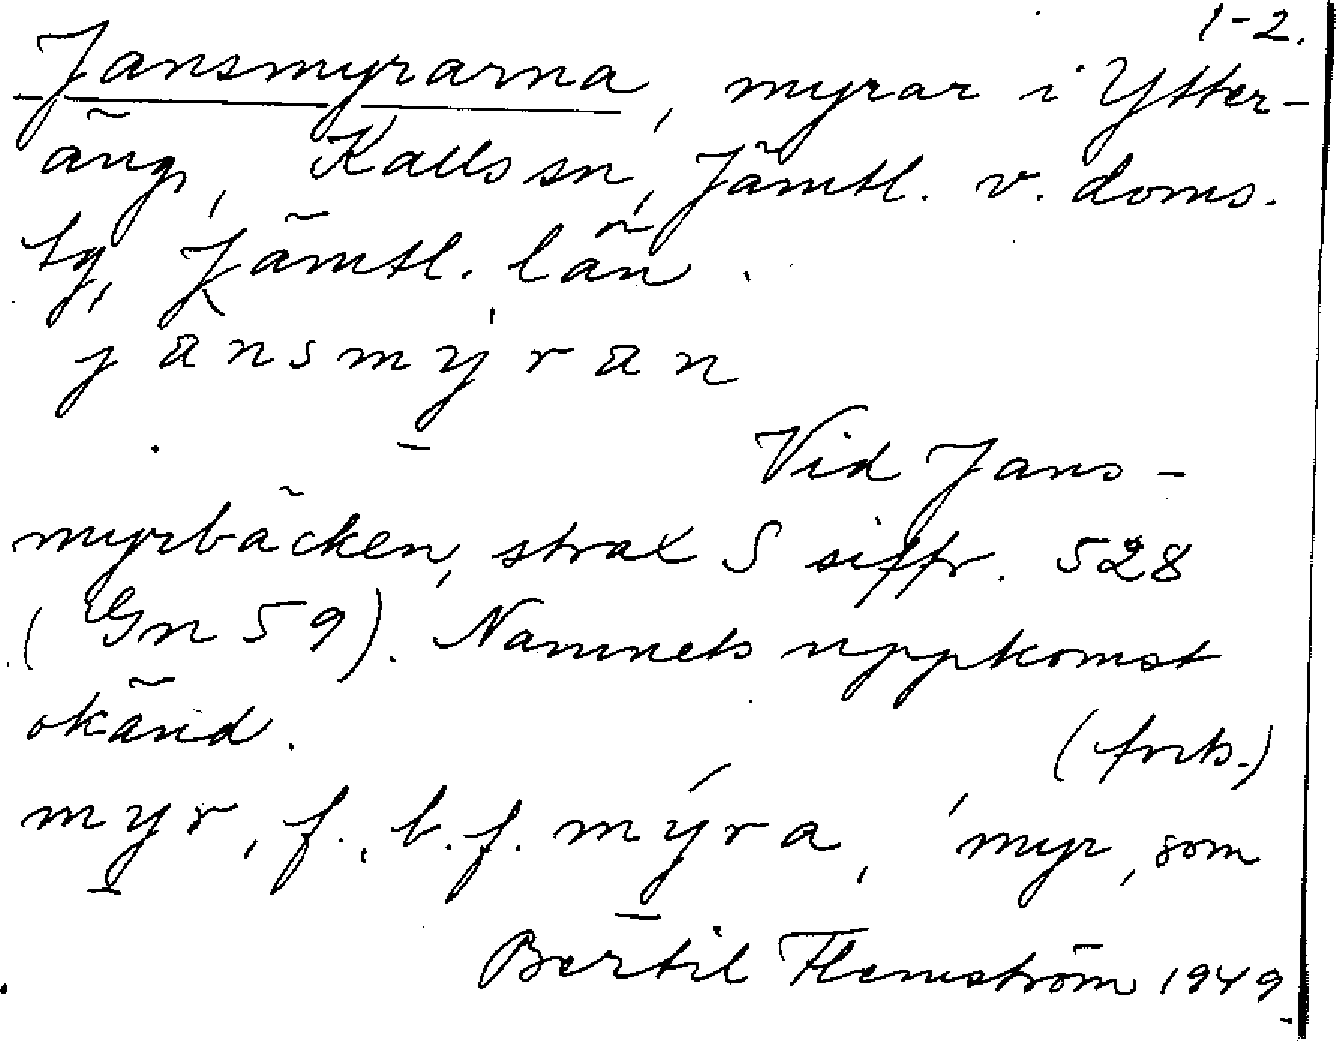 1-2.
Jansmyrarna, myrar i Ytter-
äng, Kalls sn, Jämtl. v. doms.
tg, Jämtl. län.
jansmýran
Vid Jans-
myrbäcken, strax S siffr. 528
(Gn 59). Namnets uppkomst
okänd.
(forts.)
myr, f., b.f. mýra, 'myr, som
Bertil Flemström 1949